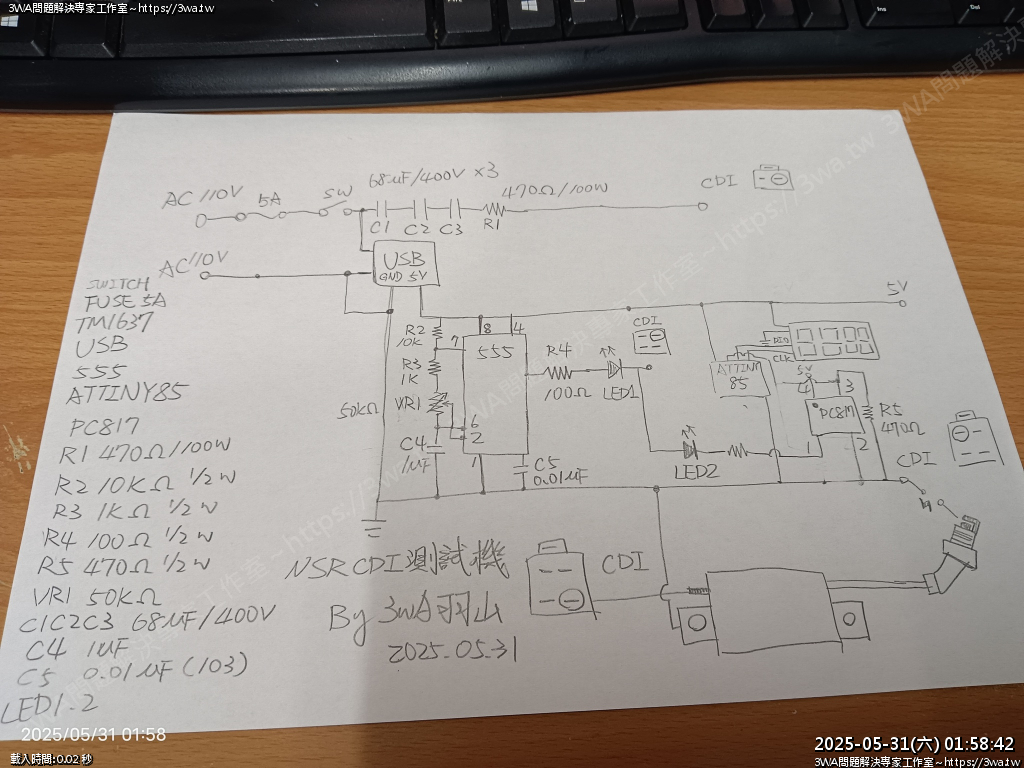 3WA問題解決專家工作室~https://3wa.tw
AC 110V
5A
SW
68uF/400V x3
470Ω/100W
CDI
C1 C2 C3 R1
AC 110V
USB
GND 5V
5V
SWITCH
FUSE 5A
TM1637
USB
555
ATTINY85
PC817
R1 470Ω/100W
R2 10KΩ 1/2W
R3 1KΩ 1/2W
R4 100Ω 1/2W
R5 470Ω 1/2W
VR1 50KΩ
C1C2C3 68uF/400V
C4 1uF
C5 0.01uF(103)
LED1.2
R2
10K
R3
1K
VR1
50KΩ
C4
1uF
7
8
4
555
6
2
1
C5
0.01uF
R4
100Ω
LED1
CDI
LED2
ATTINY
85
DIO
CLK
5V
4
3
PC817
1
2
R5
470Ω
CDI
NSR CDI 測試機
By 3WA羽山
2025.05.31
CDI
2025/05/31 01:58
載入時間:0.02 秒
2025-05-31(六) 01:58:42
3WA問題解決專家工作室~https://3wa.tw